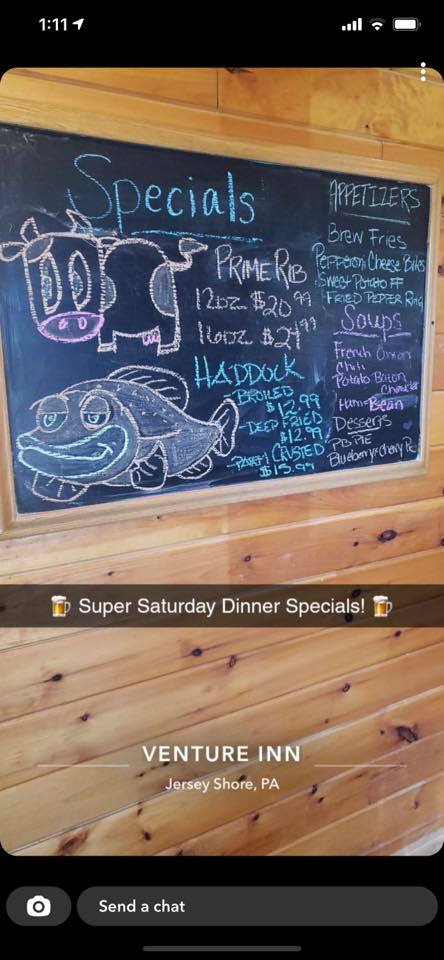 1:11
Specials
PRIME RIB
12oz $20.99
16oz $21.99
HADDOCK
- BROILED
$12.99
- DEEP FRIED
$12.99
CRUSTED
$13.99
APPETIZERS
Brew Fries
Pepperoni Cheese Bites
Sweet Potato FF
FRIED PEPPER Ring
Soups
French Onion
Chili
Potato Bacon
Chowder
Ham Bean
Desserts
PB PIE
Blueberry & Cherry Pie
🍺 Super Saturday Dinner Specials! 🍺
VENTURE INN
Jersey Shore, PA
Send a chat